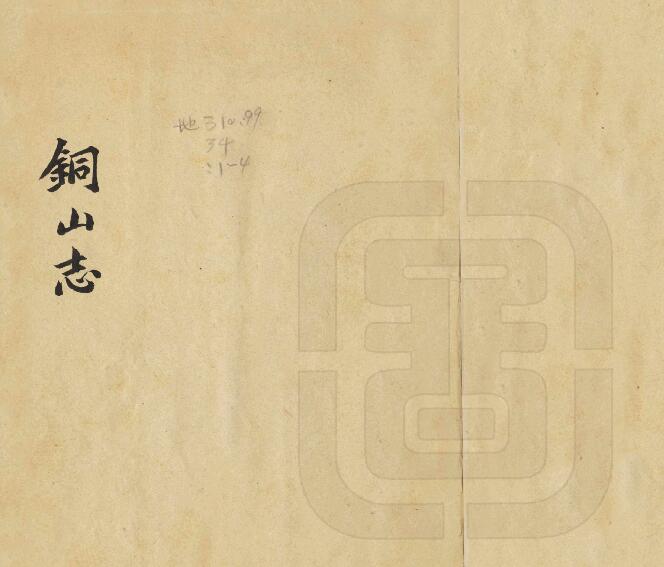 銅山志
地310.99
34
:1-4